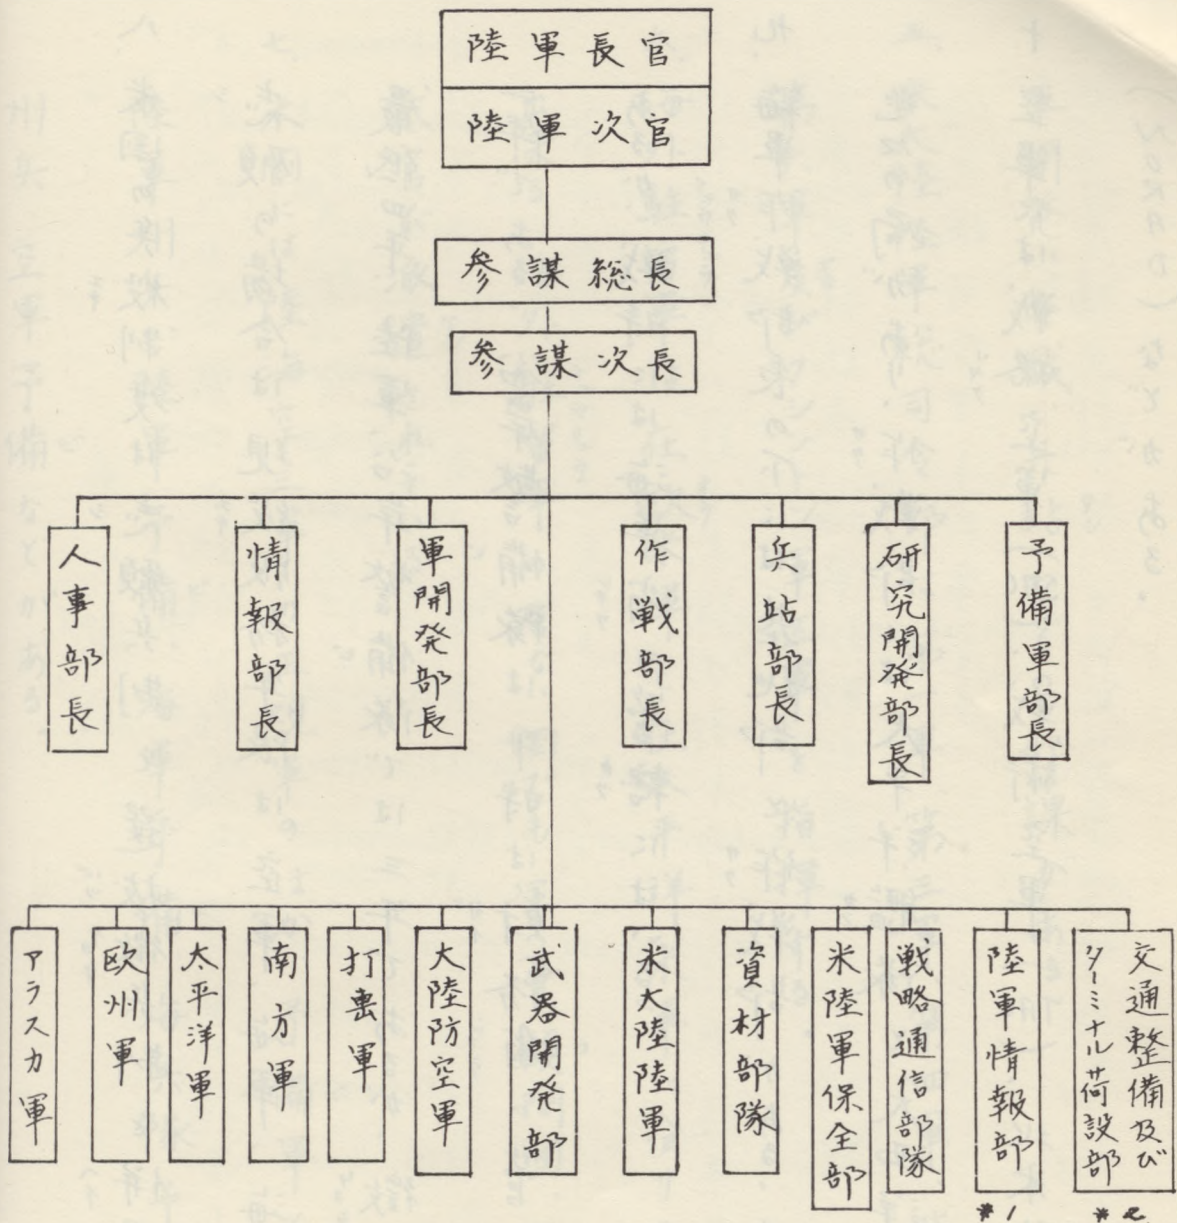 陸軍長官
陸軍次官
参謀総長
参謀次長
人事部長
情報部長
軍開発部長
作戦部長
兵站部長
研究開発部長
予備軍部長
アラスカ軍
欧州軍
太平洋軍
南方軍
打撃軍
大陸防空軍
武器開発部
米大陸陸軍
資材部隊
米陸軍保全部
戦略通信部隊
陸軍情報部
*1
交通整備及び
ターミナル荷設部
*2